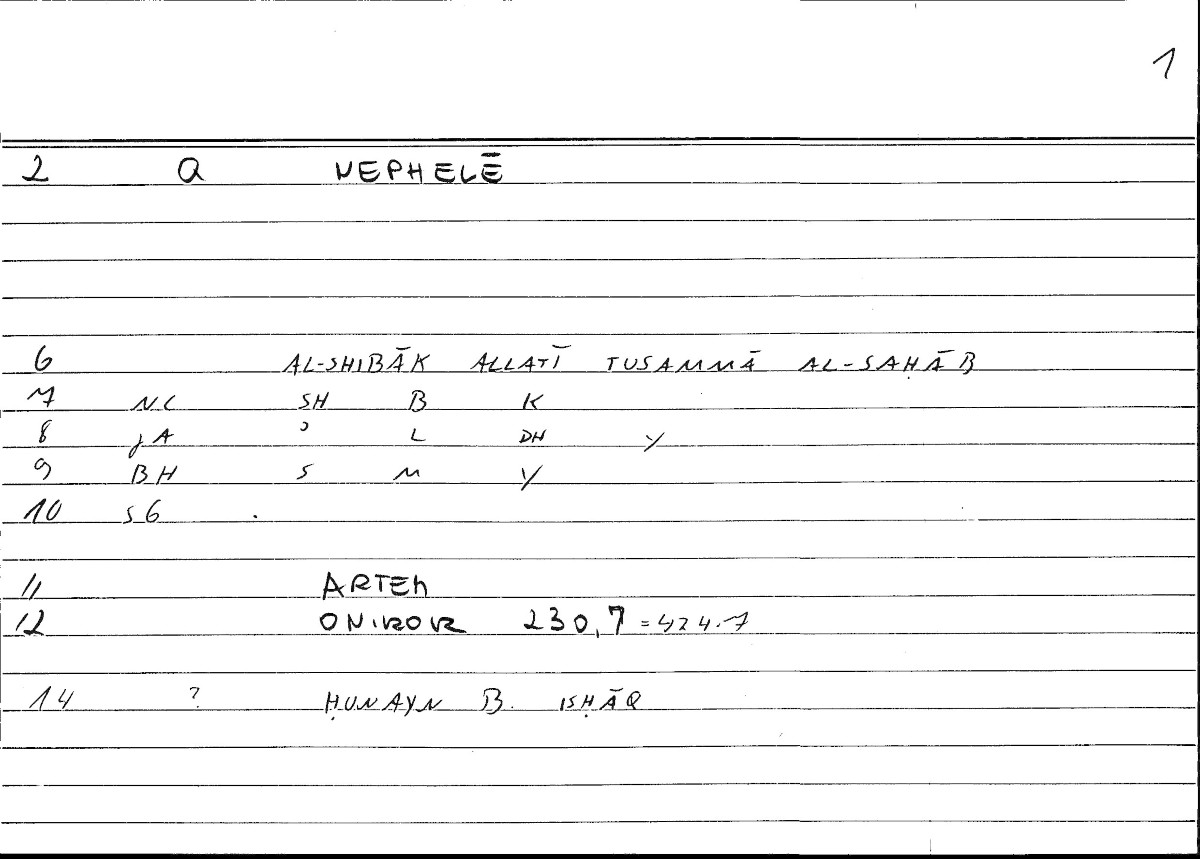 1
2 Q NEPHELĒ
6 AL-SHIBĀK ALLATĪ TUSAMMĀ AL-SAḤĀB
7 NC SH B K
8 JA ʾ L DH Y
9 BH S M Y
10 SG .
11 ARTEM
12 ONIROK 230,7 = 424.7
14 ? ḤUNAYN B. ISḤĀQ